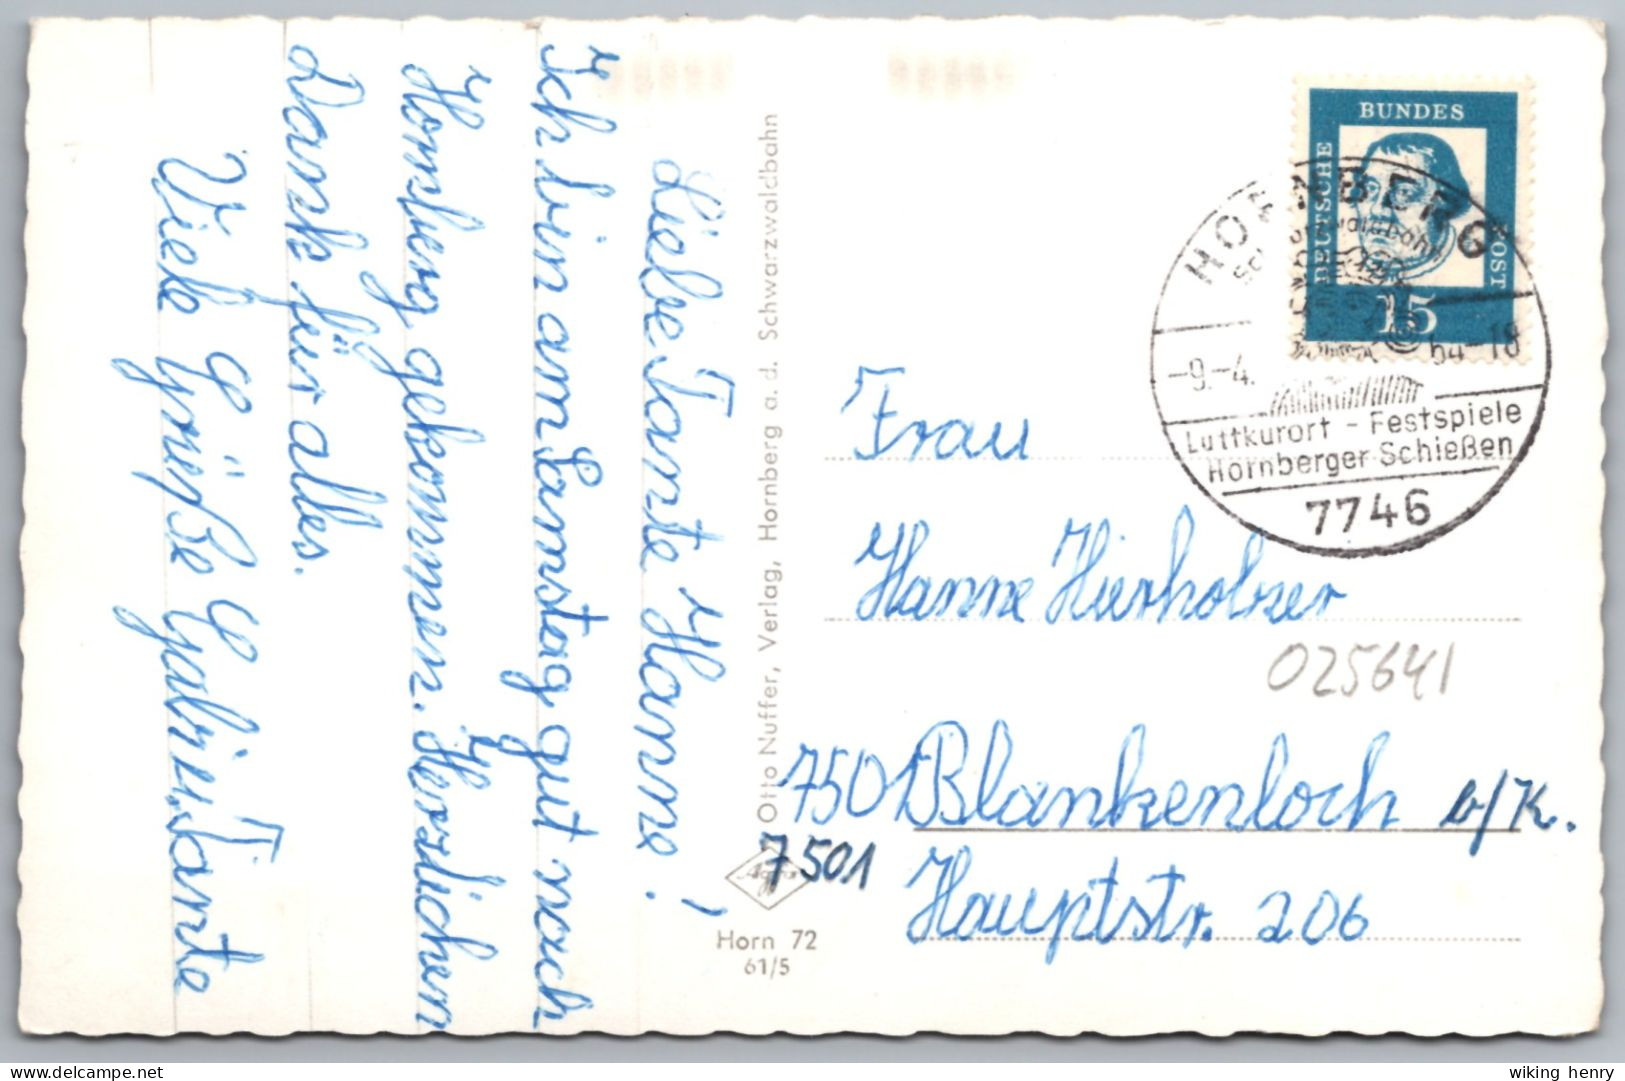 Liebe Tante Hanne!
Ich bin am Samstag gut nach
Hornberg gekommen. Herzlichen
Dank für alles.
Viele Grüße Gabri u. Tante
Otto Nuffer, Verlag, Hornberg a. d. Schwarzwaldbahn
Agfa
Horn 72
61/5
DEUTSCHE
BUNDES
POST
15
HORNBERG
-9.-4. 64-18
Luftkurort - Festspiele
Hornberger Schießen
7746
Frau
Hanne Hierholzer
025641
7501 Blankenloch b/K.
7501
Hauptstr. 206
wiking henry